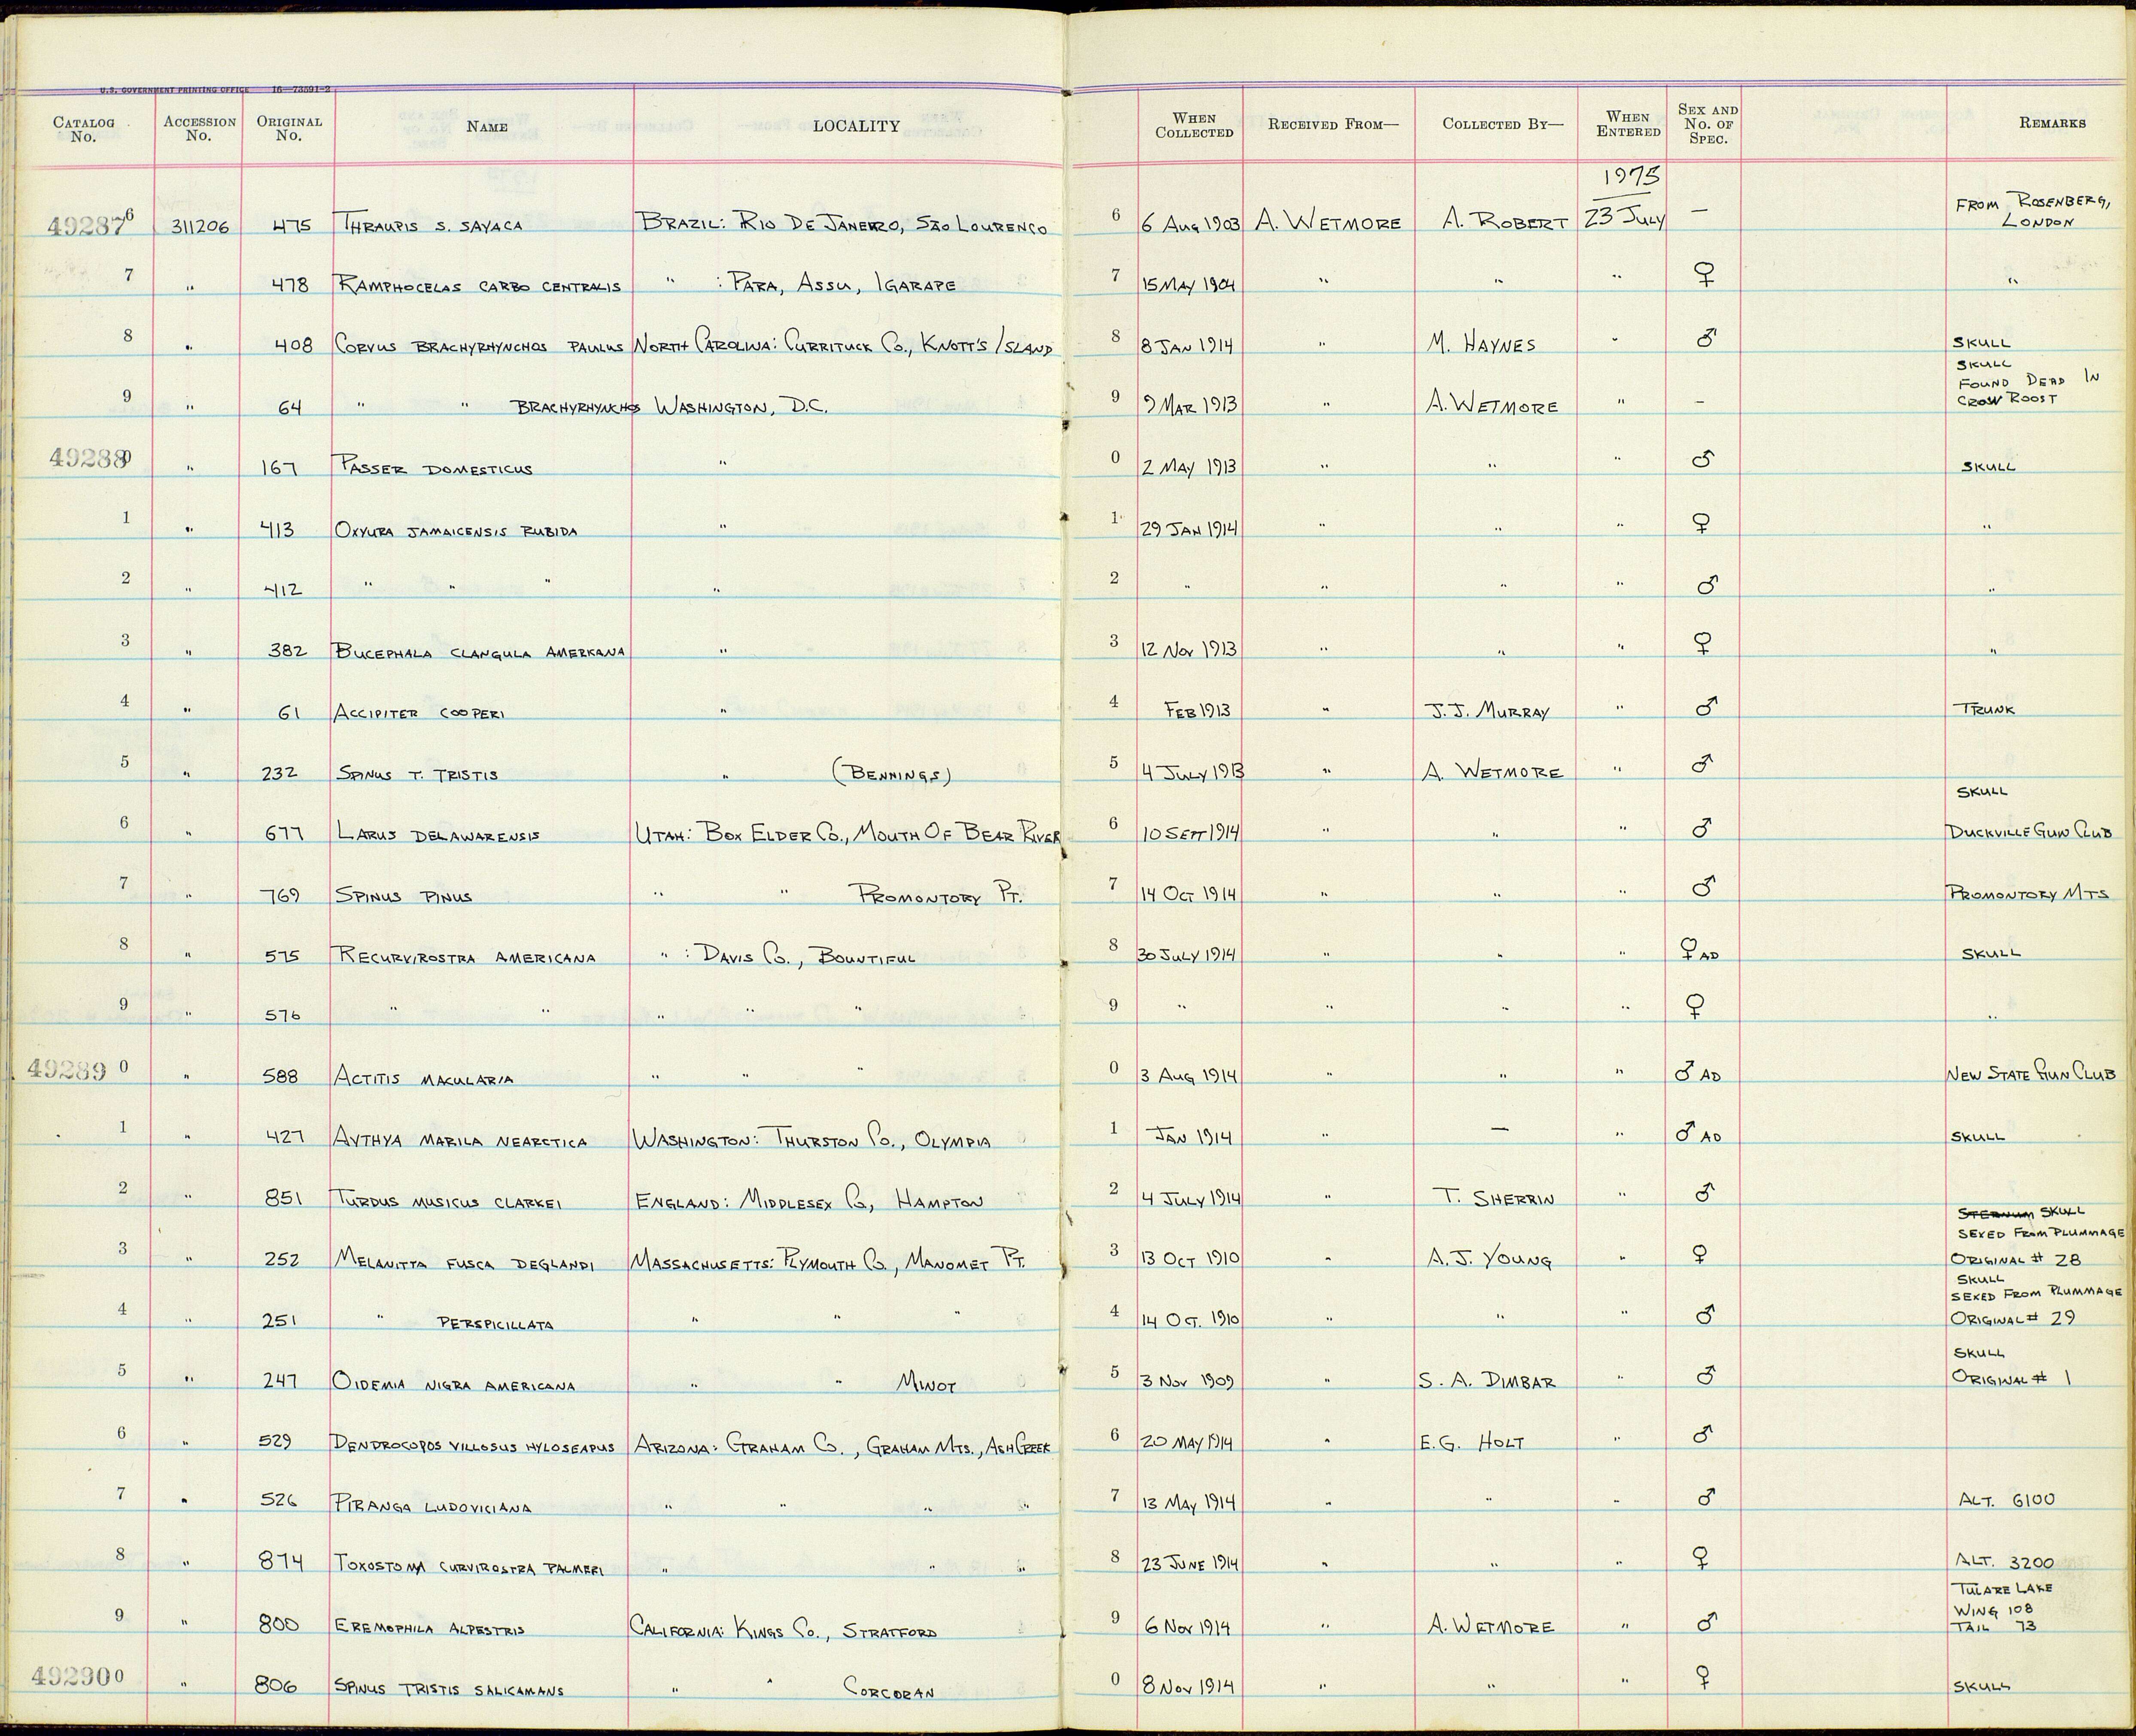 U.S. GOVERNMENT PRINTING OFFICE 16—73591-2
CATALOG No. ACCESSION No. ORIGINAL No. NAME LOCALITY WHEN COLLECTED RECEIVED FROM— COLLECTED BY— WHEN ENTERED SEX AND No. OF SPEC. REMARKS
1975
492876 311206 475 THRAUPIS S. SAYACA BRAZIL: RIO DE JANEIRO, SÃO LOURENCO 6 6 AUG 1903 A. WETMORE A. ROBERT 23 JULY — FROM ROSENBERG, LONDON
7 " 478 RAMPHOCELAS CARBO CENTRALIS " : PARA, ASSU, IGARAPE 7 15 MAY 1904 " " " ♀ "
8 " 408 CORVUS BRACHYRHYNCHOS PAULUS NORTH CAROLINA: CURRITUCK CO., KNOTT'S ISLAND 8 8 JAN 1914 " M. HAYNES " ♂ SKULL
9 " 64 " " BRACHYRHYNCHOS WASHINGTON, D.C. 9 9 MAR 1913 " A. WETMORE " — SKULL FOUND DEAD IN CROW ROOST
492880 " 167 PASSER DOMESTICUS " 0 2 MAY 1913 " " " ♂ SKULL
1 " 413 OXYURA JAMAICENSIS RUBIDA " 1 29 JAN 1914 " " " ♀ "
2 " 412 " " " " 2 " " " " ♂ "
3 " 382 BUCEPHALA CLANGULA AMERICANA " 3 12 NOV 1913 " " " ♀ "
4 " 61 ACCIPITER COOPERI " 4 FEB 1913 " J.J. MURRAY " ♂ TRUNK
5 " 232 SPINUS T. TRISTIS " (BENNINGS) 5 4 JULY 1913 " A. WETMORE " ♂
6 " 677 LARUS DELAWARENSIS UTAH: BOX ELDER CO., MOUTH OF BEAR RIVER 6 10 SEPT 1914 " " " ♂ SKULL DUCKVILLE GUN CLUB
7 " 769 SPINUS PINUS " " PROMONTORY PT. 7 14 OCT 1914 " " " ♂ PROMONTORY MTS
8 " 575 RECURVIROSTRA AMERICANA " : DAVIS CO., BOUNTIFUL 8 30 JULY 1914 " " " ♀ AD SKULL
9 " 576 " " " " " 9 " " " " ♀ "
492890 " 588 ACTITIS MACULARIA " " " 0 3 AUG 1914 " " " ♂ AD NEW STATE GUN CLUB
1 " 427 AYTHYA MARILA NEARCTICA WASHINGTON: THURSTON CO., OLYMPIA 1 JAN 1914 " — " ♂ AD SKULL
2 " 851 TURDUS MUSICUS CLARKEI ENGLAND: MIDDLESEX CO, HAMPTON 2 4 JULY 1914 " T. SHERRIN " ♂
3 " 252 MELANITTA FUSCA DEGLANDI MASSACHUSETTS: PLYMOUTH CO., MANOMET PT. 3 13 OCT 1910 " A.J. YOUNG " ♀ STERNUM SKULL SEXED FROM PLUMMAGE ORIGINAL # 28
4 " 251 " PERSPICILLATA " " " 4 14 OCT. 1910 " " " ♂ SKULL SEXED FROM PLUMMAGE ORIGINAL # 29
5 " 247 OIDEMIA NIGRA AMERICANA " " MINOT 5 3 NOV 1909 " S. A. DINBAR " ♂ SKULL ORIGINAL # 1
6 " 529 DENDROCOPOS VILLOSUS HYLOSEAPUS ARIZONA: GRAHAM CO., GRAHAM MTS., ASH CREEK 6 20 MAY 1914 " E.G. HOLT " ♂
7 " 526 PIRANGA LUDOVICIANA " " " " 7 13 MAY 1914 " " " ♂ ALT. 6100
8 " 874 TOXOSTOMA CURVIROSTRA PALMERI " " " 8 23 JUNE 1914 " " " ♀ ALT. 3200
9 " 800 EREMOPHILA ALPESTRIS CALIFORNIA: KINGS CO., STRATFORD 9 6 NOV 1914 " A. WETMORE " ♂ TULARE LAKE WING 108 TAIL 73
492900 " 806 SPINUS TRISTIS SALICAMANS " " CORCORAN 0 8 NOV 1914 " " " ♀ SKULL